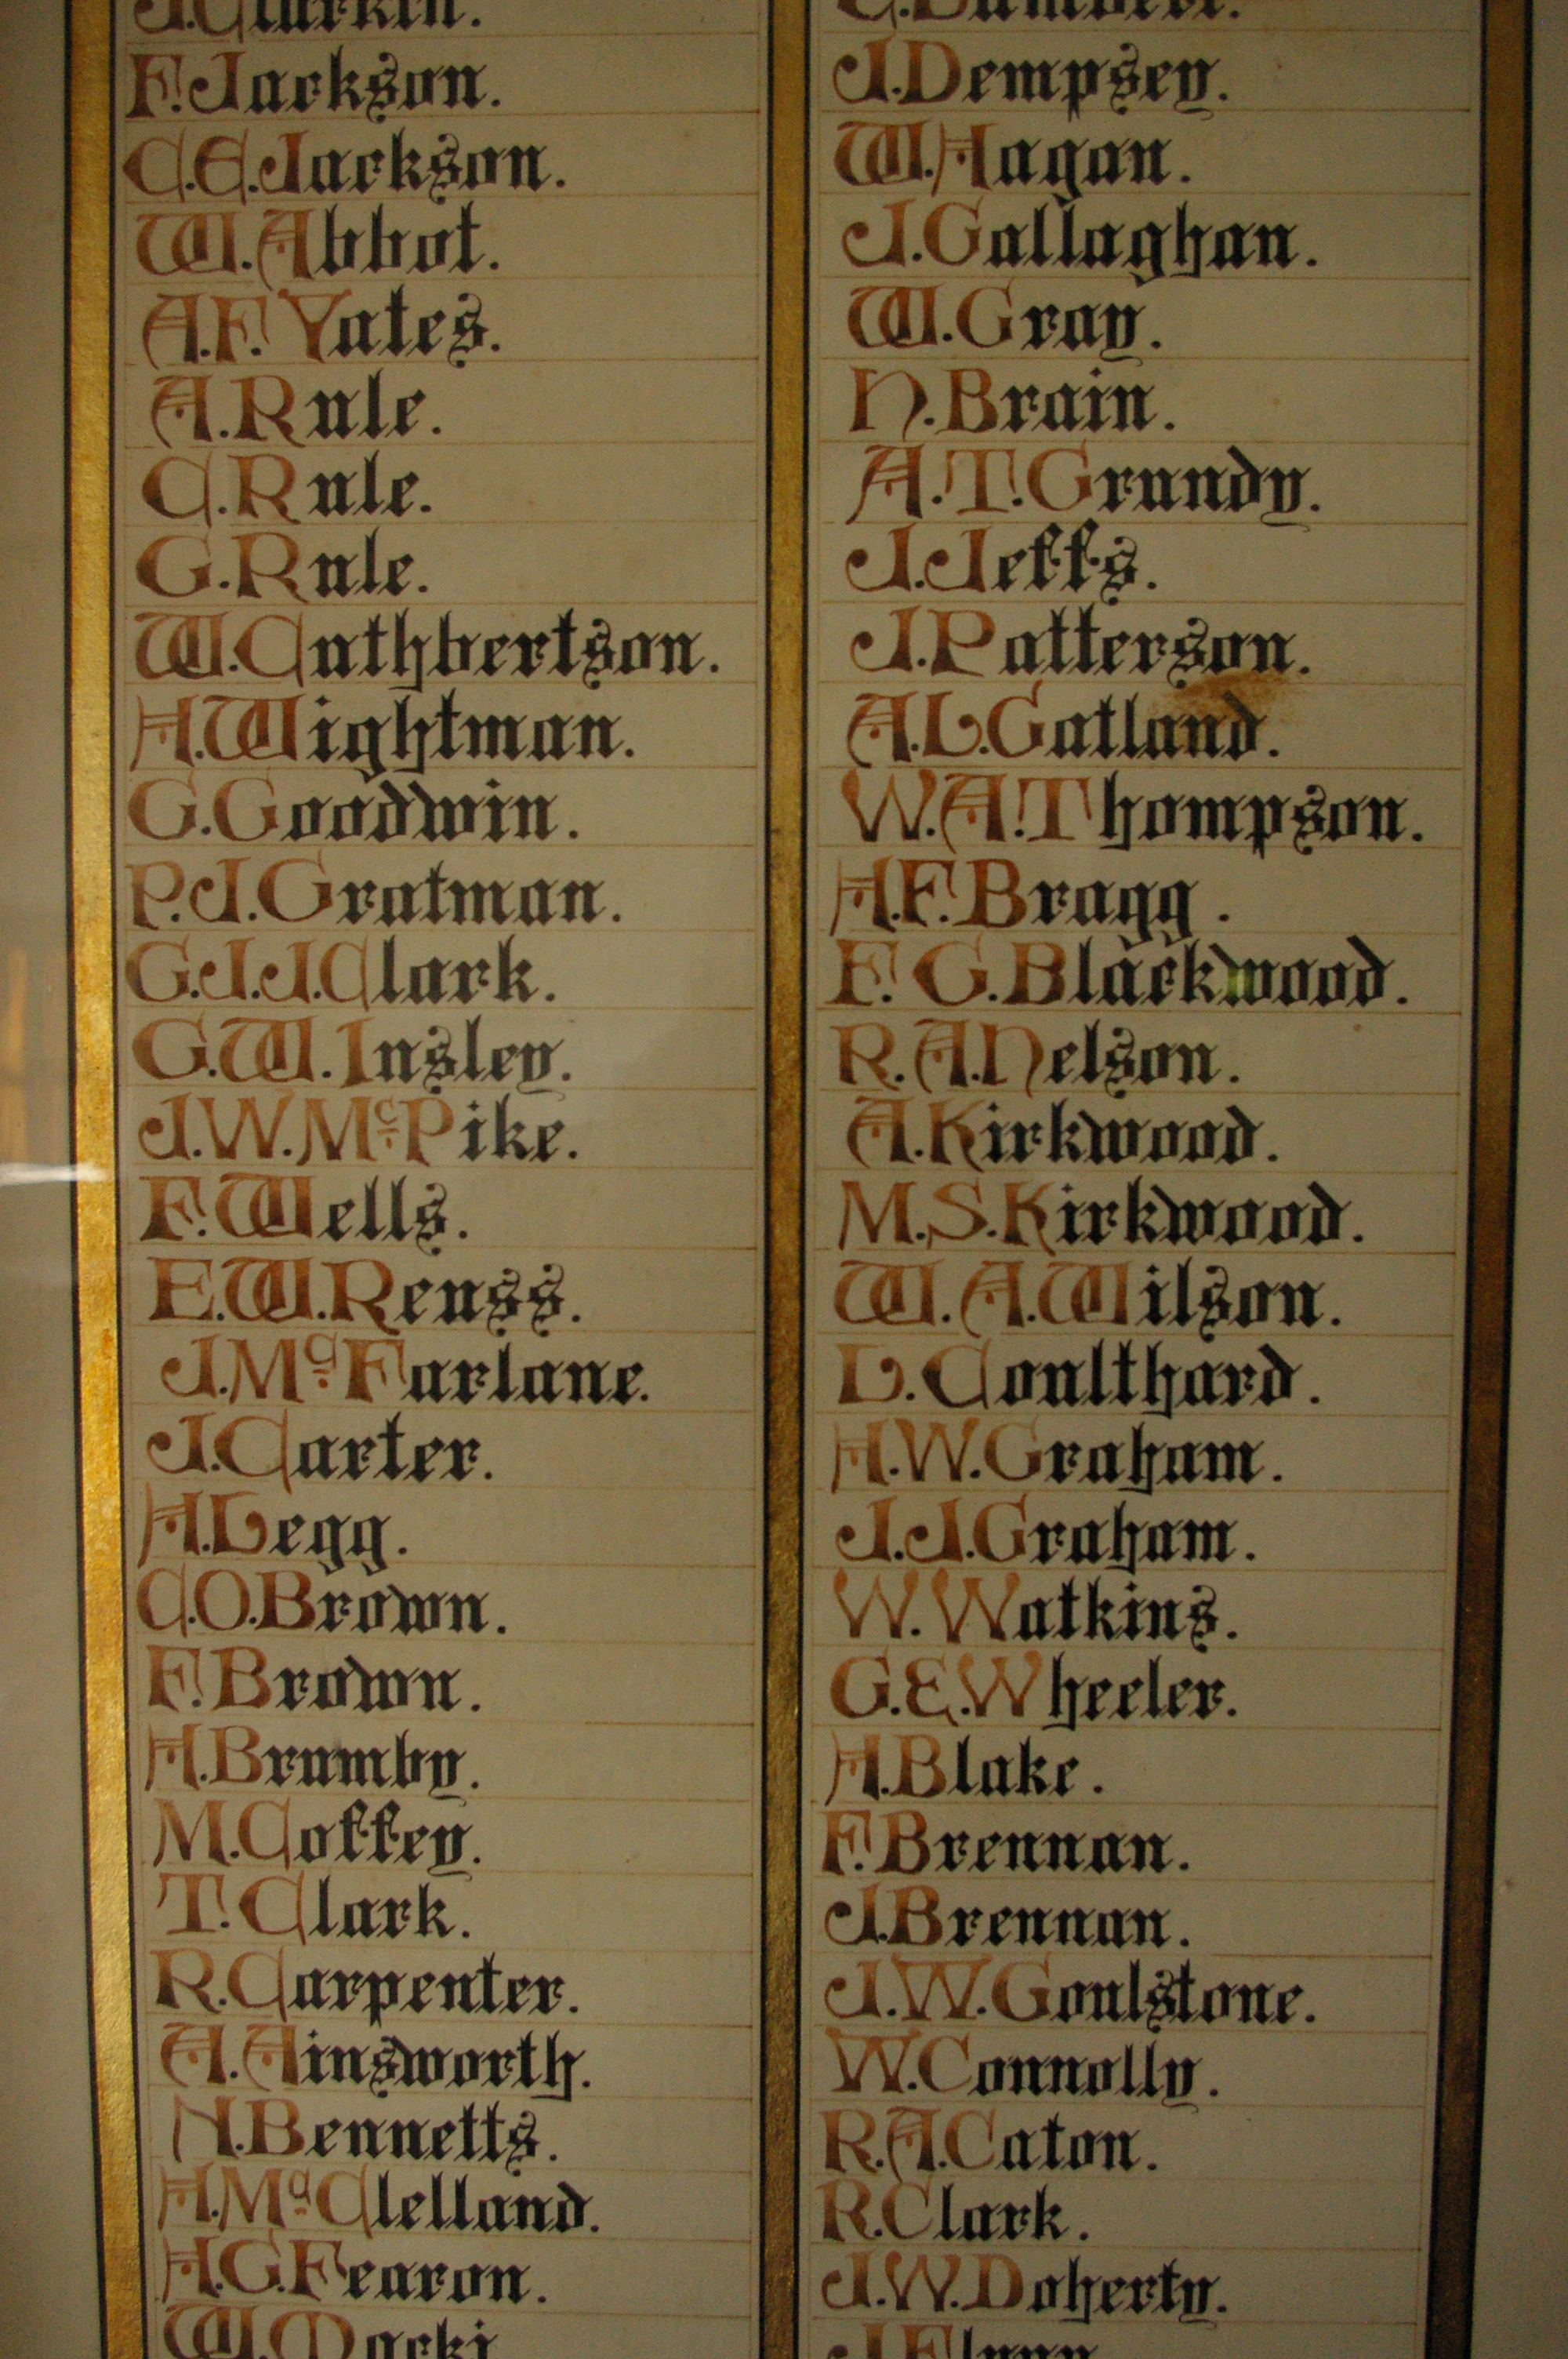 J.Clarkin.
F.Jackson.
C.E.Jackson.
W.Abbot.
A.F.Yates.
A.Rule.
C.Rule.
G.Rule.
W.Cuthbertson.
H.Wightman.
G.Goodwin.
P.J.Gratman.
G.J.J.Clark.
G.W.Insley.
J.W.McPike.
F.Wells.
E.W.Renss.
J.McFarlane.
J.Carter.
H.Legg.
C.O.Brown.
F.Brown.
H.Brumby.
M.Coffey.
T.Clark.
R.Carpenter.
A.Ainsworth.
N.Bennetts.
H.McClelland.
H.G.Fearon.
J.Dempsey.
W.Hagan.
J.Gallaghan.
W.Gray.
N.Brain.
A.T.Grundy.
J.Jeffs.
J.Patterson.
A.L.Gatland.
W.A.Thompson.
H.F.Bragg.
F.G.Blackwood.
R.A.Nelson.
A.Kirkwood.
M.S.Kirkwood.
W.A.Wilson.
L.Coulthard.
H.W.Graham.
J.J.Graham.
W.Watkins.
G.E.Wheeler.
H.Blake.
F.Brennan.
J.Brennan.
J.W.Goulstone.
W.Connolly.
R.A.Caton.
R.Clark.
J.W.Doherty.
J.Flynn